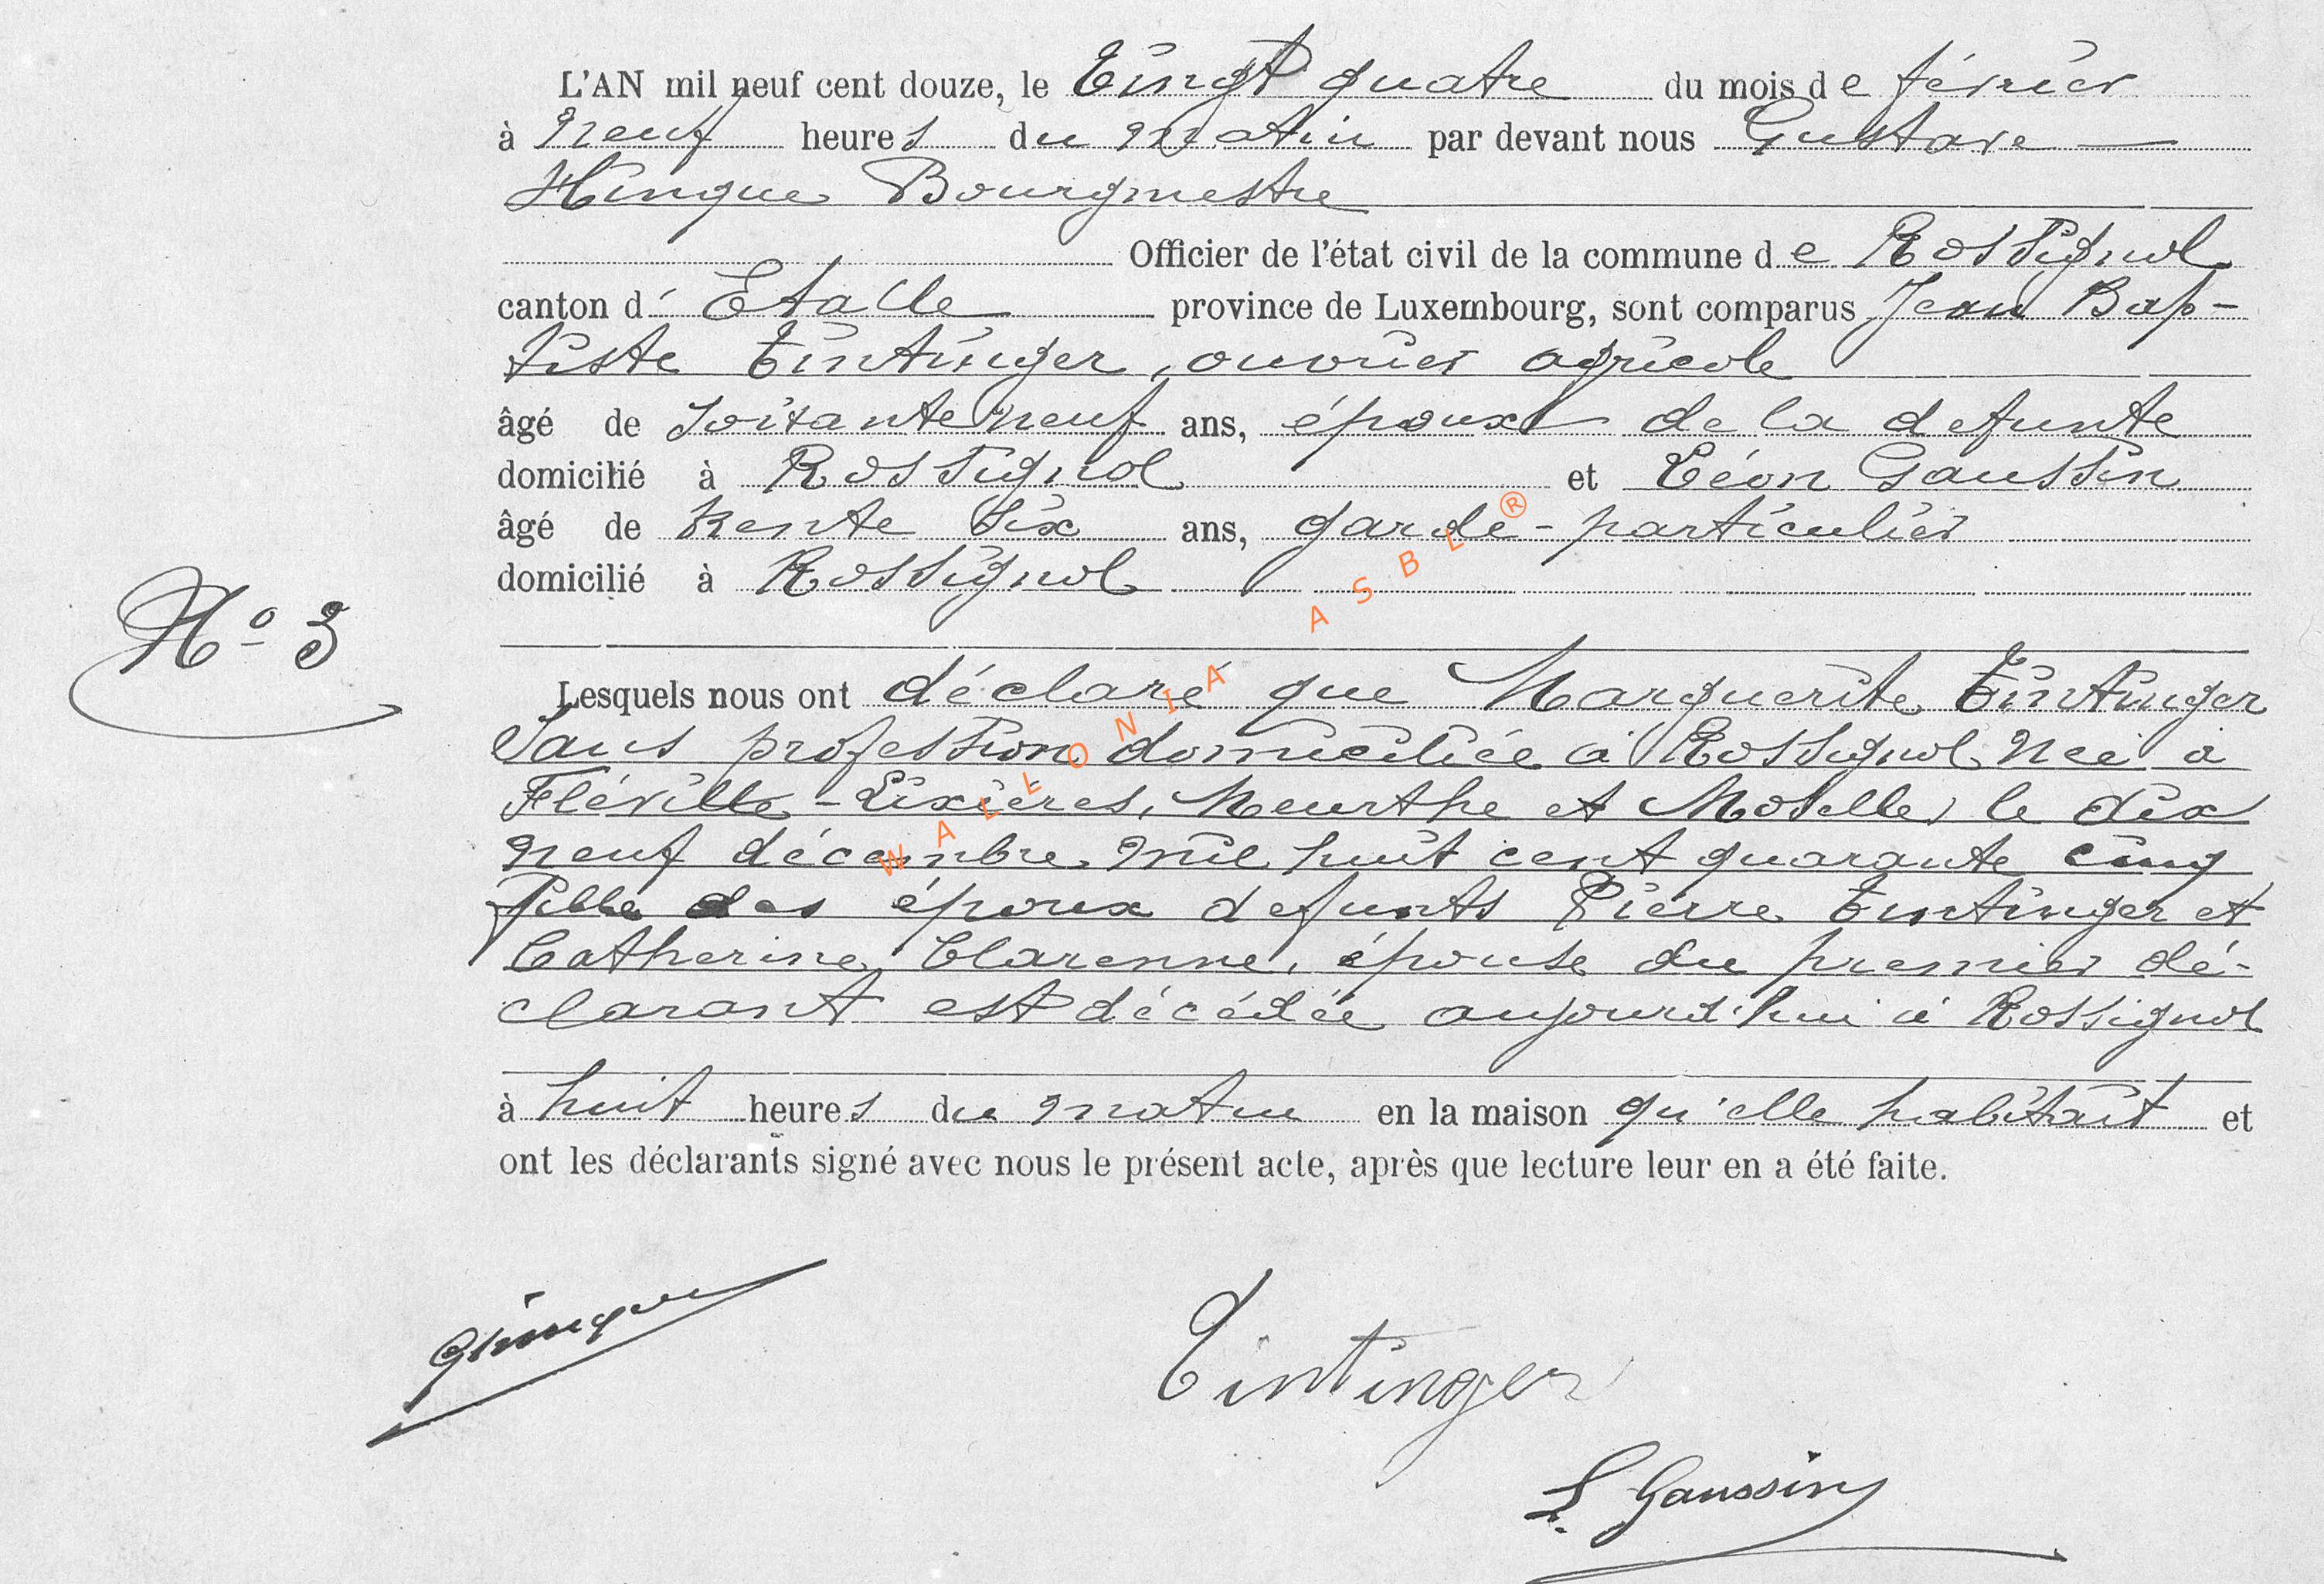 L'AN mil neuf cent douze, le vingt quatre du mois de février
à neuf heures du matin par devant nous Gustave
Hinque Bourgmestre
Officier de l'état civil de la commune de Rossignol
canton d'Etalle province de Luxembourg, sont comparus Jean Bap-
tiste Tintinger, ouvrier agricole
âgé de soixante neuf ans, époux de la defunte
domicilié à Rossignol et Léon Gaussin
âgé de trente six ans, garde-particulier
domicilié à Rossignol
No 3
Lesquels nous ont déclaré que Marguerite Tintinger
sans profession domiciliée à Rossignol, née à
Fléville-Lixières, Meurthe et Moselle, le dix
neuf décembre mil huit cent quarante cinq
fille des époux defunts Pierre Tintinger et
Catherine Clarenne, épouse du premier dé-
clarant est décédée aujourd'hui à Rossignol
à huit heures du matin en la maison qu'elle habitait et
ont les déclarants signé avec nous le présent acte, après que lecture leur en a été faite.
GHinque
Tintinger
L. Gaussin
WALLONIA ASBL ®